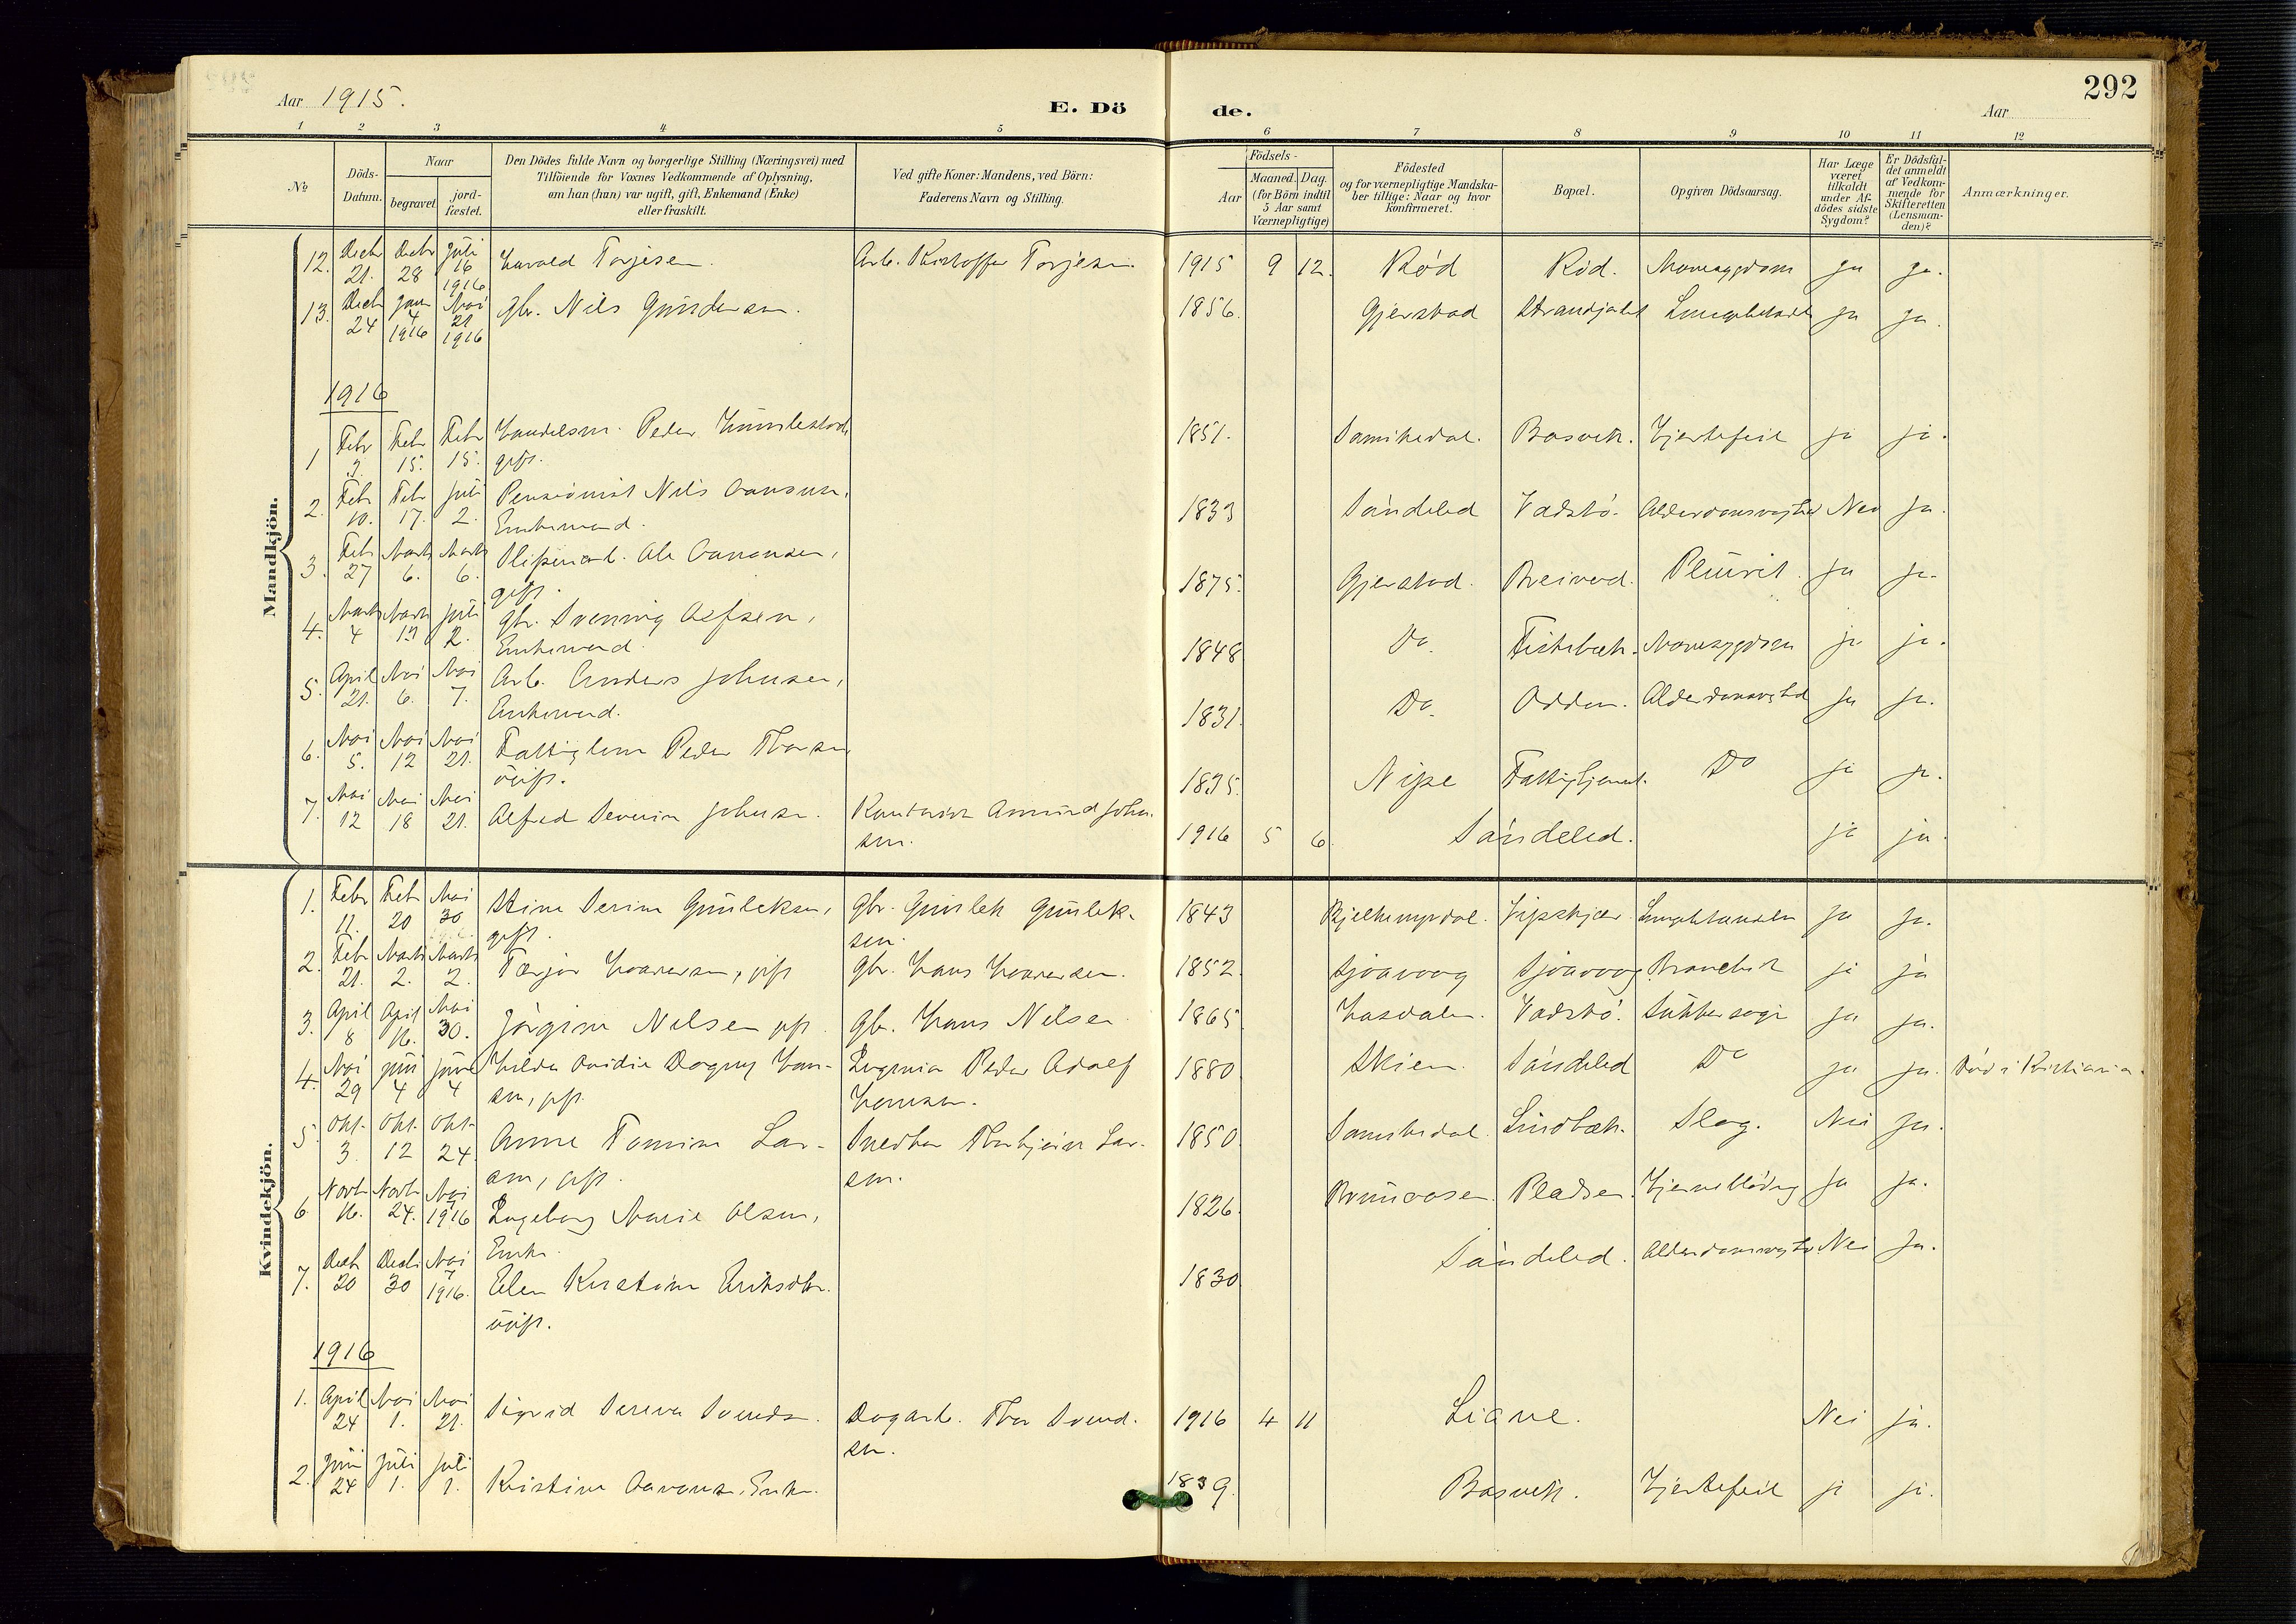 292
Aar 1915.
E. Dö de.
Aar
1 2 3 4 5 6 7 8 9 10 11 12
№
Döds-Datum.
Naar
begravet.
jord-fæstet.
Den Dödes fulde Navn og borgerlige Stilling (Næringsvei) med
Tilföiende for Voxnes Vedkommende af Oplysning,
om han (hun) var ugift, gift, Enkemand (Enke)
eller fraskilt.
Ved gifte Koner: Mandens, ved Börn:
Faderens Navn og Stilling.
Födsels-
Aar
Maaned.
Dag.
(for Börn indtil
5 Aar samt
Værnepligtige)
Födested
og for værnepligtige Mandska-
ber tillige: Naar og hvor
konfirmeret.
Bopæl.
Opgiven Dödsaarsag.
Har Læge
været
tilkaldt
under Af-
dödes sidste
Sygdom?
Er Dödsfal-
det anmeldt
af Vedkom-
mende for
Skifteretten
(Lensman-
den)?
Anmærkninger.
Mandkjön.
12. Decbr 21. Decbr 28 Juli 16 1916 Harald Torjesen. Arb. Kristoffer Torjesen 1915 9 12. Röd Röd. Mavesygdom ja ja.
13. Decb 24 Jan 4 1916 Mai 21 1916 gbr. Nils Gundersen. 1856. Gjerstad ja ja.
1916
1 Febr 3. Febr 15. Febr 15. Handelsm. Peder
gift. 1851. Sannikedal. Bosvik. Hjertefeil ja ja.
2. Febr 10. Febr 17. Juli 2. Pensionist Nils Aanonsen,
Enkemand. 1833 Söndeled Vadstö. Alderdomssvaghed Nei ja.
3. Febr 27 Marts 6. Marts 6. Sliperiarb. Ole Aanonsen,
gift. 1875. Gjerstad. Breivad. Pleurit ja ja.
4. Marts 4 Marts 13 Juli 2. gbr. Svenning Olefsen,
Enkemand. 1848 Do. Fiskebæk. Mavesygdom ja ja.
5. April 21. Mai 6. Mai 7. Arb. Anders Johnsen,
Enkemand. 1831. Do. Odden. Alderdomssvaghed ja ja.
6. Mai 5. Mai 12 Mai 21. Fattiglem Peder Thorsen
ugift. 1835. Nipe Fattighjemmet. Do ja ja.
7. Mai 12 Mai 18 Mai 21. Alfred Severin Johnsen. Kontorist Amund John-
sen. 1916 5 6. Söndeled. ja ja.
Kvindekjön.
1. Febr 11. Feb 20 Mai 30 Stine Serine Gunleksen,
gift. gbr. Gunlek Gunlek-
sen. 1843 ja ja.
2. Feb 21. Marts 2. Marts 2. Tærjer Haaversen, gift gbr. Hans Haaversen. 1852. Sjöavaag Sjöavaag Bronchit ja ja
3. April 8 April 16. Mai 30. Jörgine Nilsen gift. gbr. Hans Nilsen 1865. Hasdalen. Vadstö. Sukkersyge ja ja.
4. Mai 29 Juni 4 Juni 4 Hilda Ovidia Dagny Han-
sen, gift. Ingeniør Peder Adolf
Hansen. 1880 Skien. Söndeled Do ja ja. Död i Kristiania.
5. Okt. 3. Okt. 12 Okt. 24 Anne Tomine Lar-
sen, gift. Snedker Thorbjörn Lar-
sen. 1850. Sannikedal. Lindbæk. Slag. Nei ja.
6 Novb 16. Novb 24. Mai 7 1916 Ingeborg Marie Olsen,
Enke. 1826. Brunaasen. Pladsen. Hjerneblödning ja ja.
7. Decb 20 Decb 30 Mai 7 1916. Elen Kristine Eriksdtr.
ugift. 1830 Söndeled. Alderdomssvaghed Nei ja.
1916
1. April 24 Mai 1. Mai 21. Sigrid Serena Svends. Dagarb. Thor Svend-
sen. 1916 4 11 Liane. Nei ja.
2. Juni 24 Juli 1. Juli 1. Kristine Aanons. Enke. 1839. Bosvik. Hjertefeil ja ja.